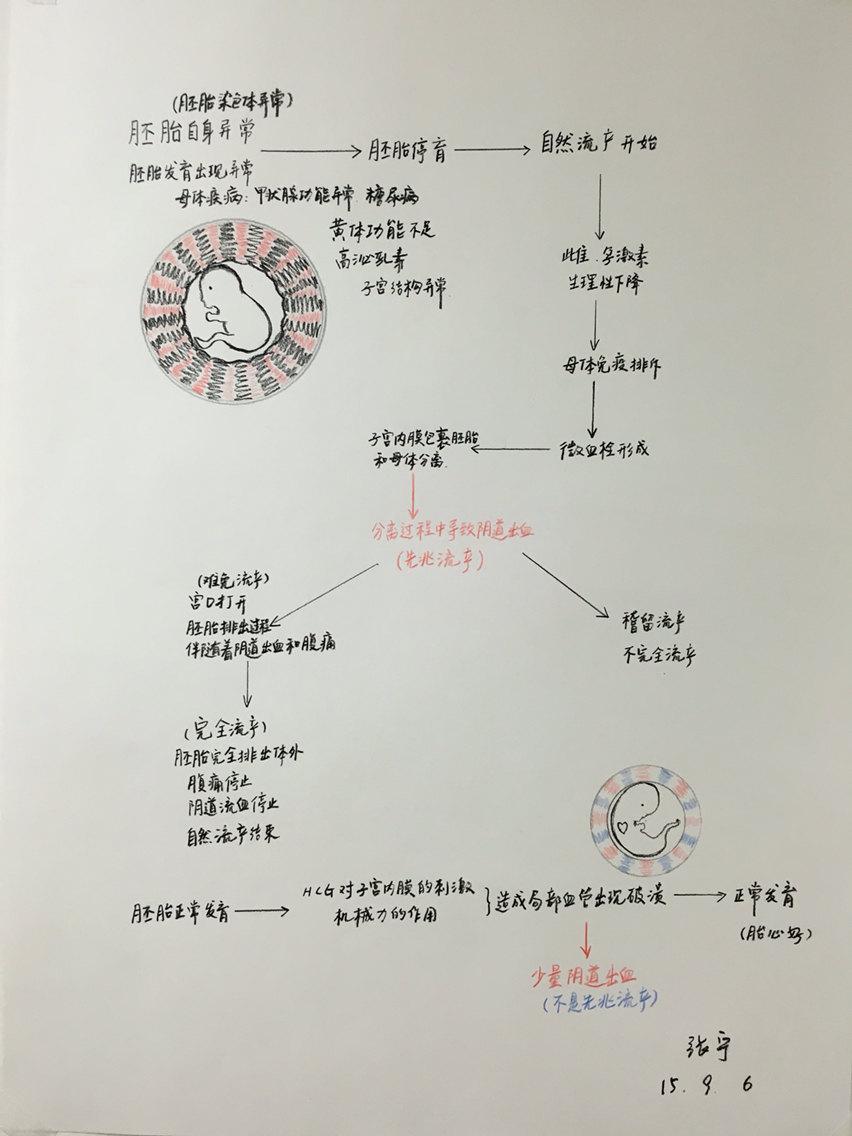 (胚胎染色体异常)
胚胎自身异常
胚胎停育
自然流产开始
胚胎发育出现异常
母体疾病：甲状腺功能异常 糖尿病
黄体功能不足
高泌乳素
子宫结构异常
此住.孕激素
生理性下降
母体免疫排斥
微血栓形成
子宫内膜包裹胚胎
和母体分离
分离过程中导致阴道出血
(先兆流产)
(难免流产)
宫口打开
胚胎排出过程
伴随着阴道出血和腹痛
稽留流产
不完全流产
(完全流产)
胚胎完全排出体外
腹痛停止
阴道流血停止
自然流产结束
胚胎正常发育
HCG对子宫内膜的刺激
机械力的作用
}造成局部血管出现破溃
正常发育
(胎心好)
少量阴道出血
(不是先兆流产)
张宁
15. 9. 6